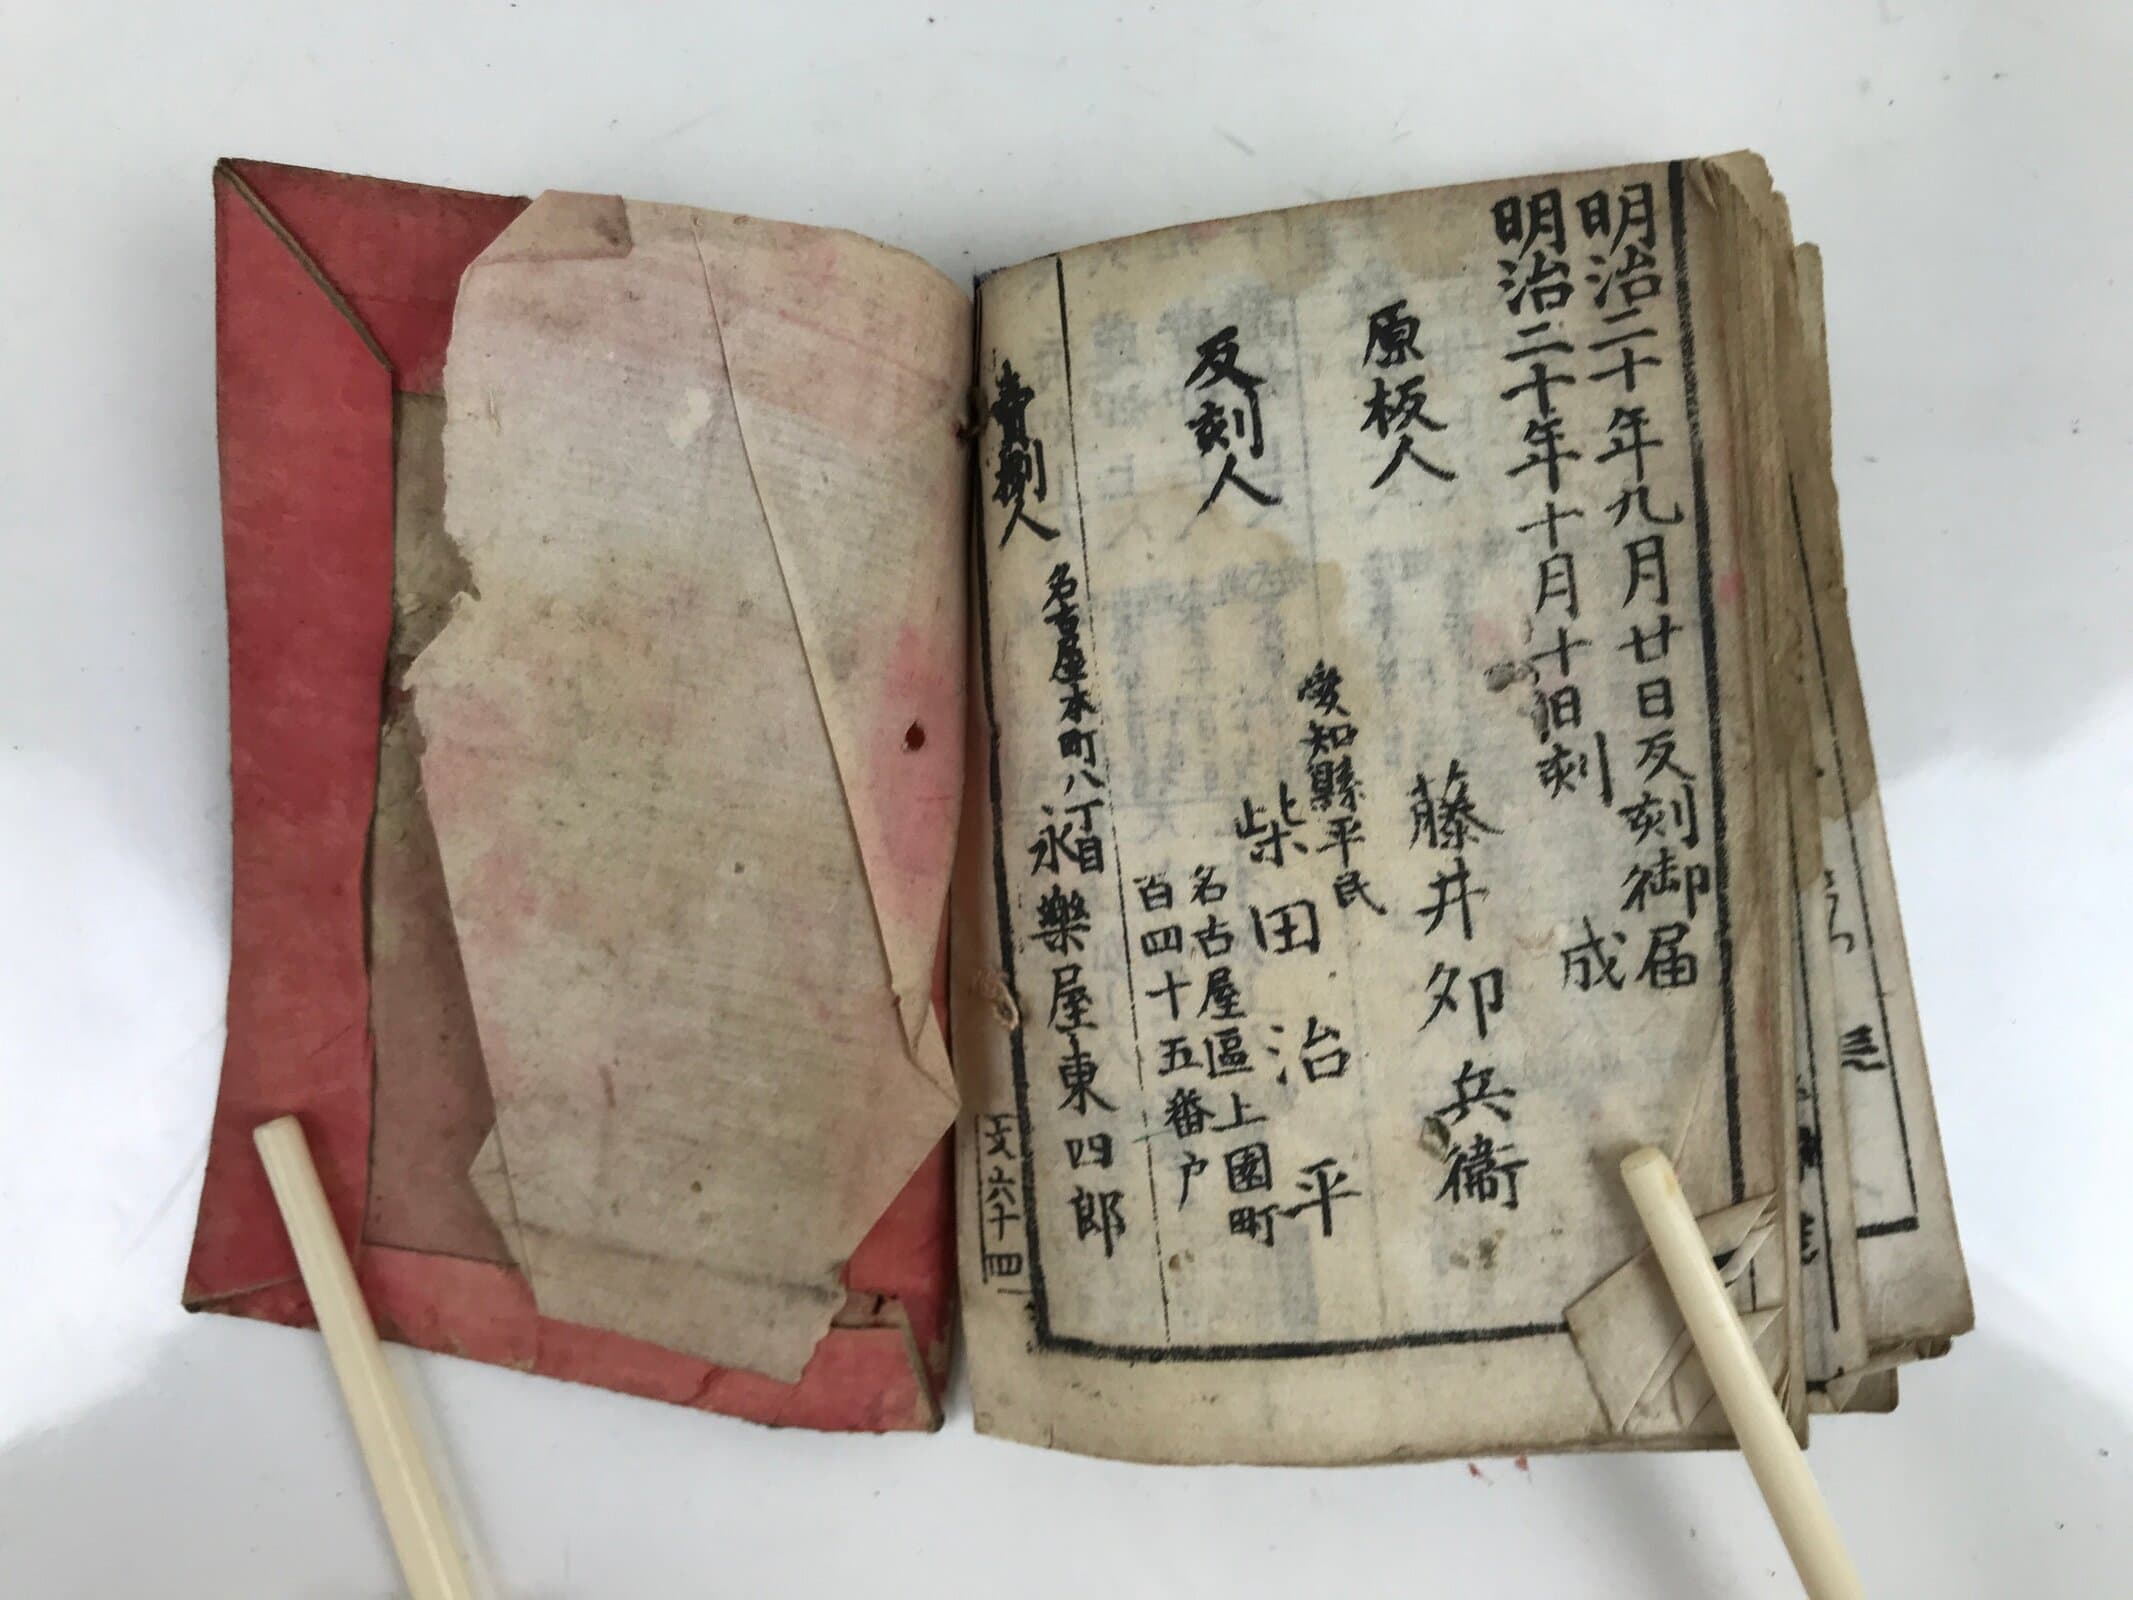 明治二十年九月廿日反刻御届
明治二十年十月十日刻成
原板人
藤井卯兵衞
反刻人
愛知縣平民
柴田治平
名古屋區上園町
百四十五番戸
賣捌人
名古屋本町八丁目
永樂屋東四郎
文六十四
三